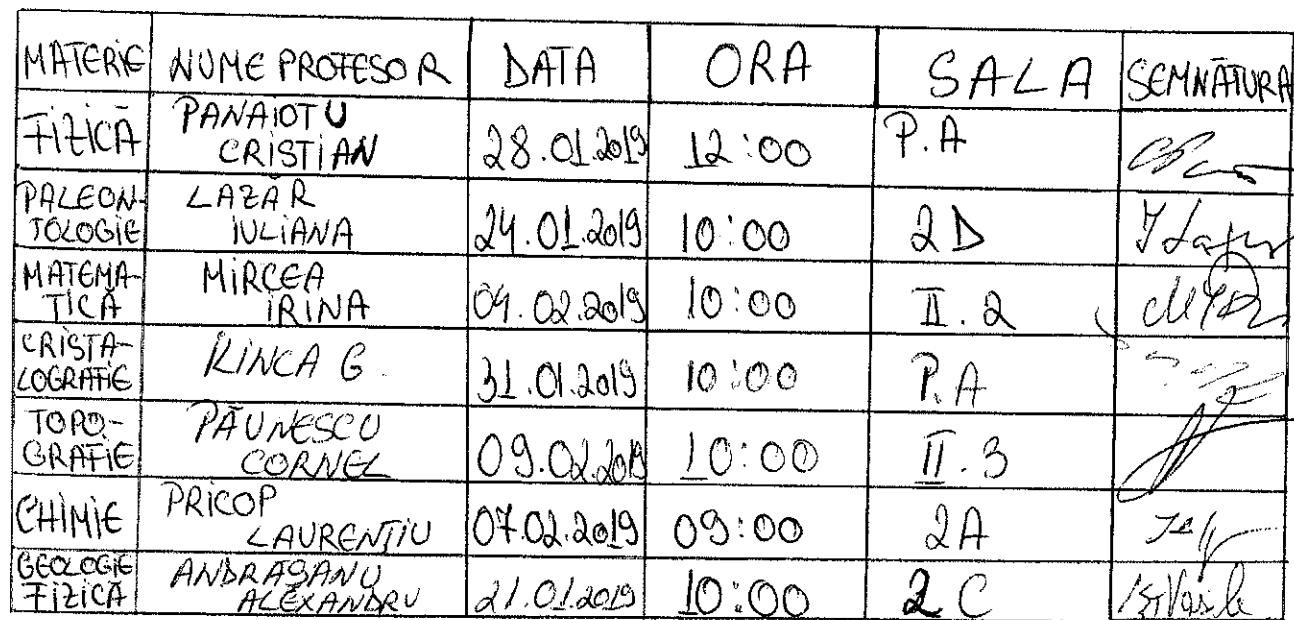 MATERIE NUME PROFESOR DATA ORA SALA SEMNĂTURA
FIZICĂ PANAIOTU CRISTIAN 28.01.2019 12:00 P.A
PALEON-TOLOGIE LAZĂR IULIANA 24.01.2019 10:00 2D
MATEMA-TICĂ MIRCEA IRINA 04.02.2019 10:00 II.2
CRISTA-LOGRAFIE ILINCA G. 31.01.2019 10:00 P.A
TOPO-GRAFIE PĂUNESCU CORNEL 09.02.2019 10:00 II.3
CHIMIE PRICOP LAURENȚIU 07.02.2019 09:00 2A
GEOLOGIE FIZICĂ ANDRAȘANU ALEXANDRU 21.01.2019 10:00 2C